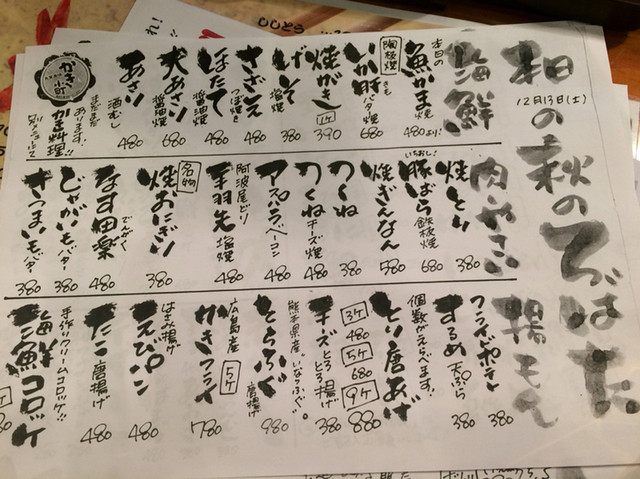 本日の秋のろばた
12月13日(土)
海鮮
本日の
魚かま焼 480より!
陶板焼
いか肝バタ焼 680
焼がき 1ケ 390
げそ塩焼 380
さざえ つぼ焼き 480
ほたて 醤油焼 480
大あさり 醤油焼 680
あさり 酒むし 480
かき小町
まだまだ
あります!
かき料理!!
別メニューにて
肉・やさい
焼とり 380
いちおし!
豚ばら 鉄板焼 680
焼ぎんなん 580
つくね 380
つくねチーズ焼 480
アスパラベーコン 480
阿波尾どり
手羽先 塩焼 480
名物
焼おにぎり 380
なす田楽 でんがく 480
じゃがいもバター 380
さつまいもバター 380
揚もん
フライドポテト 380
するめ天ぷら 380
個数がえらべます!
とり唐あげ
3ケ 480
5ケ 680
9ケ 880
チーズとろとろ揚げ 380
熊本県産
とらふぐ 唐揚げ 980
広島産
かきフライ 5ケ 780
はさみ揚げ
えびパン 480
たこ唐揚げ 480
手作りクリームコロッケ!!
海鮮コロッケ 380
ししとう